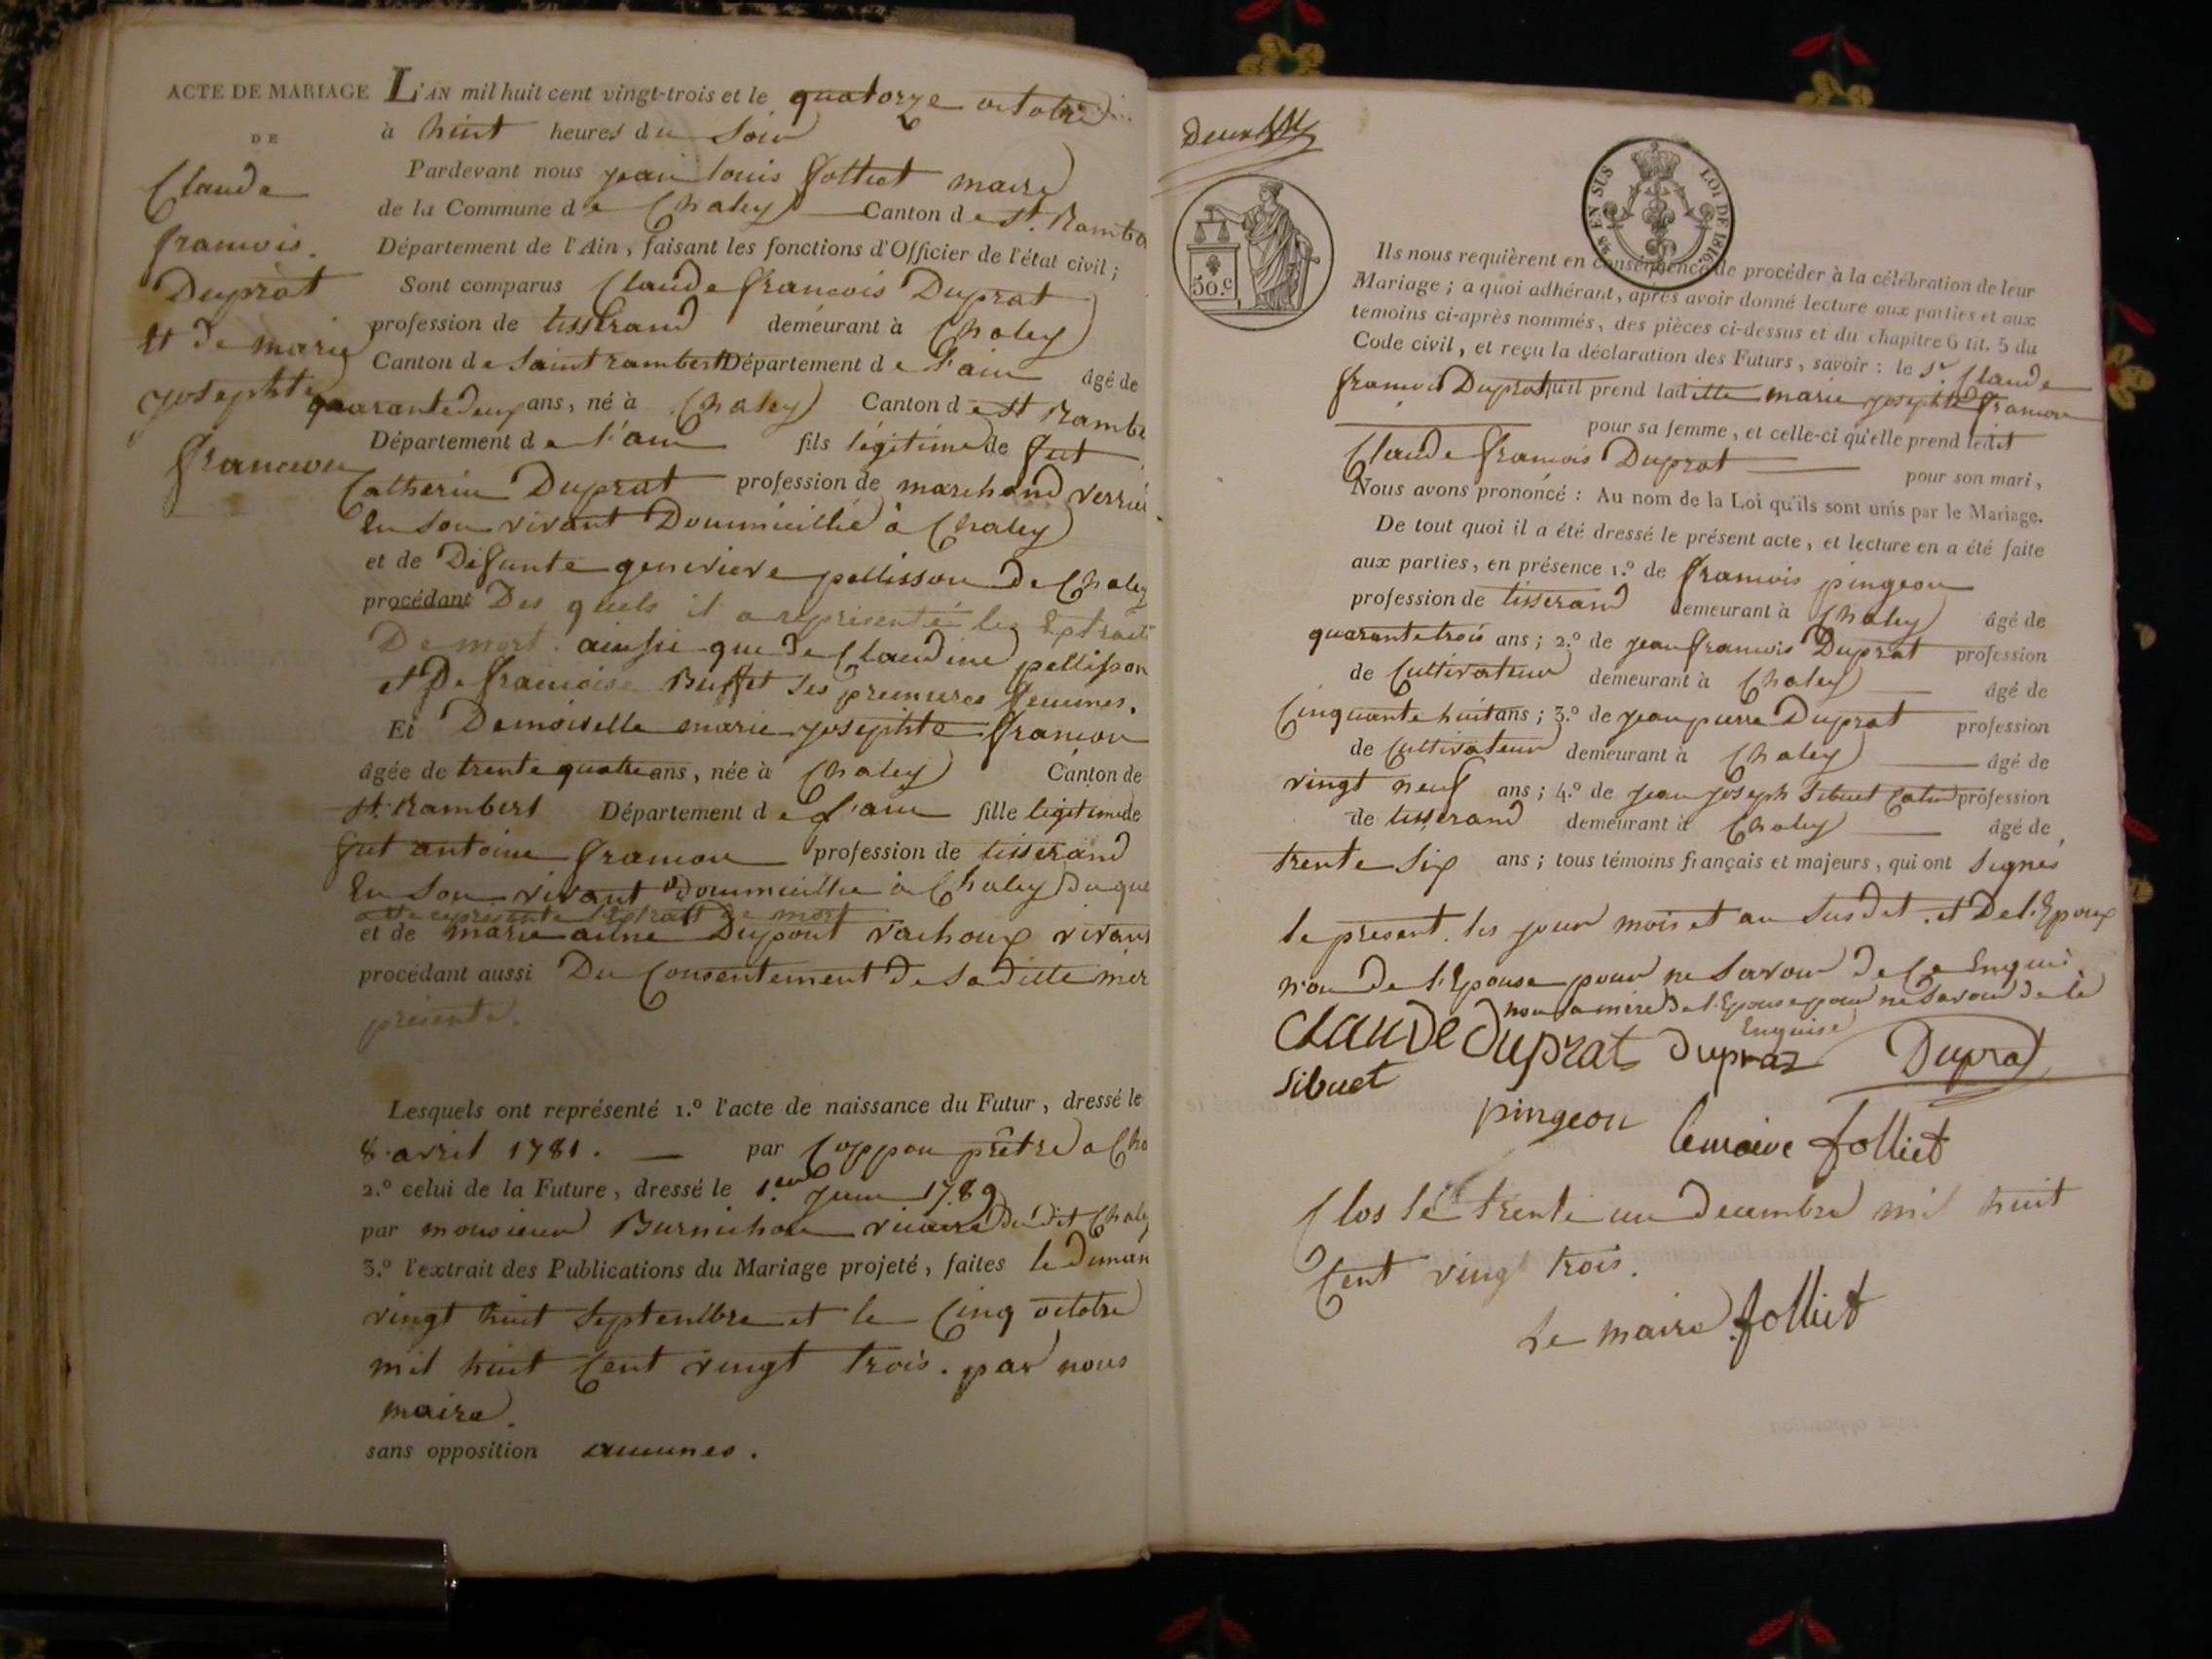 ACTE DE MARIAGE
DE
Claude
francois.
Duprat
et de marie
josephte
francon
L'AN mil huit cent vingt-trois et le quatorze octobre
à huit heures du soir
Pardevant nous jean louis folliet maire
de la Commune de Chaley Canton de st. Rambe
Département de l'Ain, faisant les fonctions d'Officier de l'état civil;
Sont comparus Claude francois Duprat
profession de tisserand demeurant à Chaley
Canton de saint rambert Département de l'ain âgé de
quarante deux ans, né à Chaley Canton de st Rambe
Département de l'ain fils légitime de fut
Catherin Duprat profession de marchand verrie
En son vivant Doummicillié à Chaley
et de Defunte genevieve pellisson de Chaley
procédant Des quels il a representé les Extraits
De mort. ainssi que de Claudine pellisson
et De francoise Buffet ses premieres femmes.
Et Demoiselle marie josephte francon
âgée de trente quatre ans, née à Chaley Canton de
st. Rambert Département de l'ain fille legitime de
fut antoine francon profession de tisserand
En son vivant Doummicillie à Chaley Duque
a été representé l'Extrait de mort
et de marie Dupont vachoux vivan
procédant aussi Du Consentement de sa ditte mer
présente.
Lesquels ont représenté 1.º l'acte de naissance du Futur, dressé le
8. avril 1781. — par Coppon prêtre a Cha
2.º celui de la Future, dressé le 1.er Juin 1789
par monsieur Burnichon vicaire du dit Chaley
3.º l'extrait des Publications du Mariage projeté, faites le diman
vingt huit septembre et le Cinq octobre
mil huit Cent vingt trois. par nous
maire.
sans opposition aucunes.
50.c
EN SUS LOI DE 1816.
Ils nous requièrent en conséquence de procéder à la célébration de leur
Mariage; a quoi adhérant, après avoir donné lecture aux parties et aux
temoins ci-après nommés, des pièces ci-dessus et du chapitre 6 tit. 5 du
Code civil, et reçu la déclaration des Futurs, savoir: le sr. Claude
francois Duprat qu'il prend ladite marie josephte francon
pour sa femme, et celle-ci qu'elle prend ledit
Claude francois Duprat pour son mari,
Nous avons prononcé: Au nom de la Loi qu'ils sont unis par le Mariage.
De tout quoi il a été dressé le présent acte, et lecture en a été faite
aux parties, en présence 1.º de francois pingeon
profession de tisserand demeurant à Chaley âgé de
quarante trois ans; 2.º de jean francois Duprat profession
de Cultivateur demeurant à Chaley âgé de
Cinquante huit ans; 3.º de jean pierre Duprat profession
de Cultivateur demeurant à Chaley âgé de
vingt neuf ans; 4.º de jean joseph Sibuet Catin profession
de tisserand demeurant à Chaley âgé de
trente six ans; tous témoins français et majeurs, qui ont signés
le present. les jour mois et an susdit. et De l'Epoux
non de l'Epouse pour ne savoir de ce Enquis
non la mere de l'Epouse pour ne savoir de ce
Enquise
CLAUDE Duprat Dupraz Duprat
Sibuet
pingeon lemaire folliet
Clos le trente un decembre mil huit
Cent vingt trois.
Le maire folliet